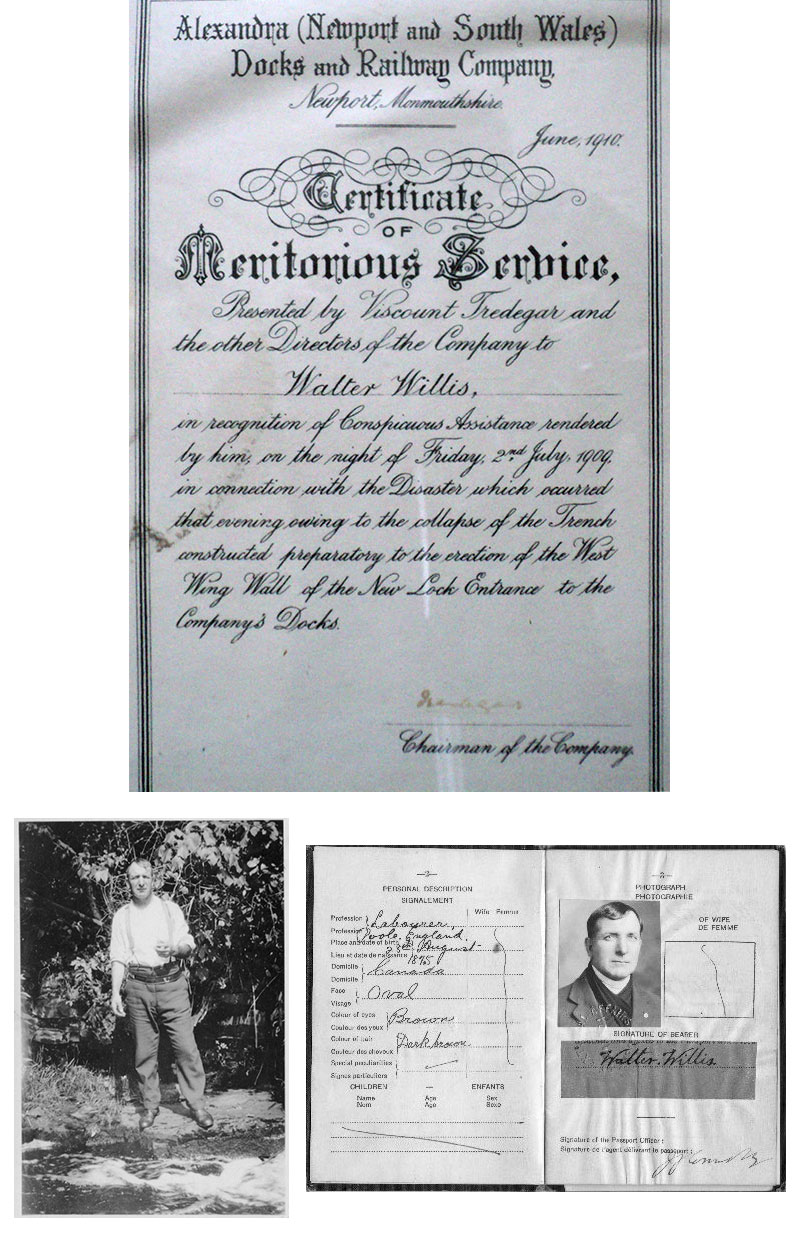 Alexandra (Newport and South Wales)
Docks and Railway Company,
Newport, Monmouthshire.
June, 1910.
Certificate
OF
Meritorious Service,
Presented by Viscount Tredegar and
the other Directors of the Company to
Walter Willis,
in recognition of Conspicuous Assistance rendered
by him, on the night of Friday, 2nd July, 1909,
in connection with the Disaster which occurred
that evening owing to the collapse of the Trench
constructed preparatory to the erection of the West
Wing Wall of the New Lock Entrance to the
Company's Docks.
Tredegar
Chairman of the Company.
—2—
PERSONAL DESCRIPTION
SIGNALEMENT
Wife Femme
Profession
Profession
Labourer,
Place and date of birth
Poole, England
Lieu et date de naissance
23rd August
1875
Domicile
Domicile
Canada
Face
Visage
Oval
Colour of eyes
Couleur des yeux
Brown
Colour of hair
Couleur des cheveux
Dark brown
Special peculiarities
Signes particuliers
CHILDREN — ENFANTS
Name Age Sex
Nom Age Sexe
PHOTOGRAPH
PHOTOGRAPHIE
OF WIFE
DE FEMME
SIGNATURE OF BEARER
Walter Willis
Signature of the Passport Officer :
Signature de l'agent délivrant le passeport :